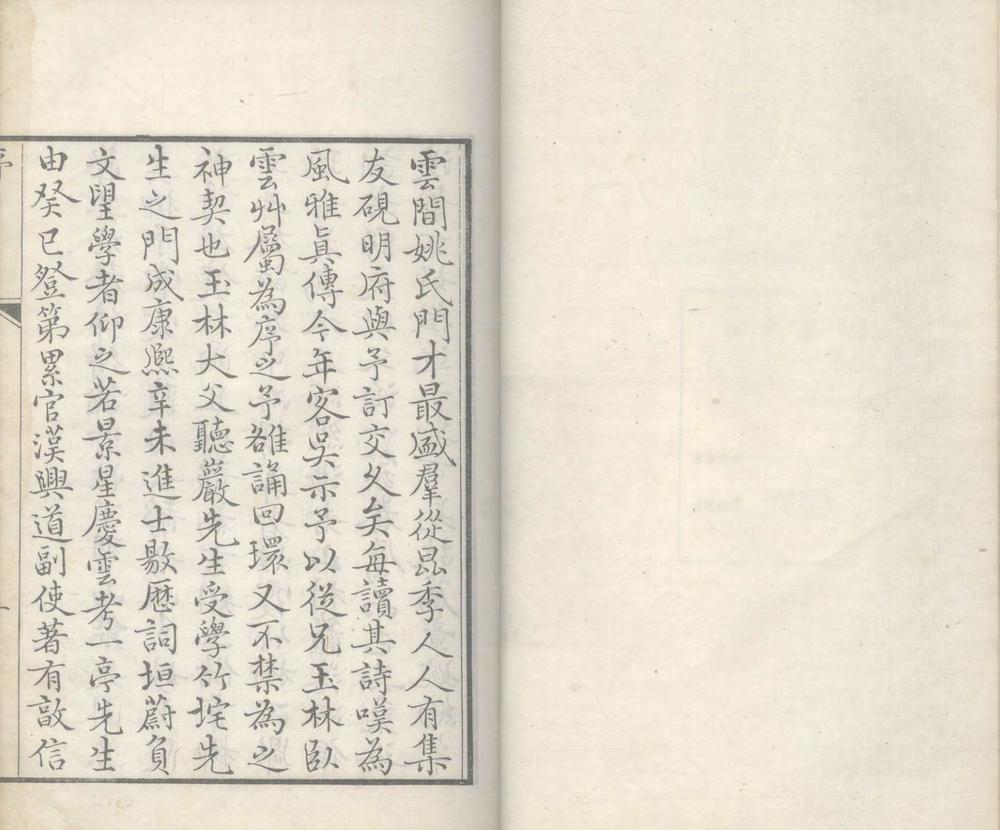 雲間姚氏門才最盛羣從昆季人人有集
友硯明府與予訂交久矣每讀其詩嘆為
風雅眞傳今年客吳示予以從兄玉林臥
雲艸屬為序之予雒誦回環又不禁為之
神契也玉林大父聽巖先生受學竹垞先
生之門成康熙辛未進士敭歷詞垣蔚負
文望學者仰之若景星慶雲考一亭先生
由癸巳登第累官漢興道副使著有敦信